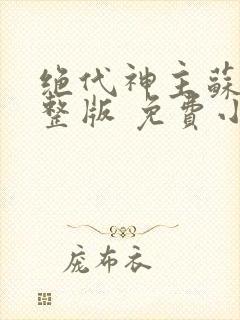 绝代神主蘇
整版 免費小
庞布衣